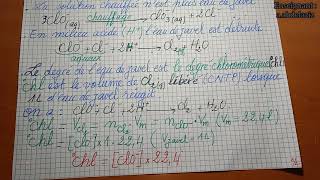 La solution chauffée n'est plus eau de javel
3ClO⁻(aq) chauffage → ClO₃⁻(aq) + 2Cl⁻
En milieu acide (H⁺) l'eau de javel est détruite
ClO⁻ + Cl⁻ + 2H⁺ → Cl₂ + H₂O
Le degré de l'eau de javel est le degré chlorométrique (°Chl)
°Chl est le volume de Cl₂(g) libéré (CNTP) lorsque
1L d'eau de javel réagit
on a : ClO⁻ + Cl⁻ + 2H⁺ → Cl₂ + H₂O
°Chl = V = n · Vm = nClO⁻ · Vm (Vm = 22,4 L)
°Chl = [ClO⁻] × 1 × 22,4 (V javel = 1L)
°Chl = [ClO⁻] × 22,4
Enseignant :